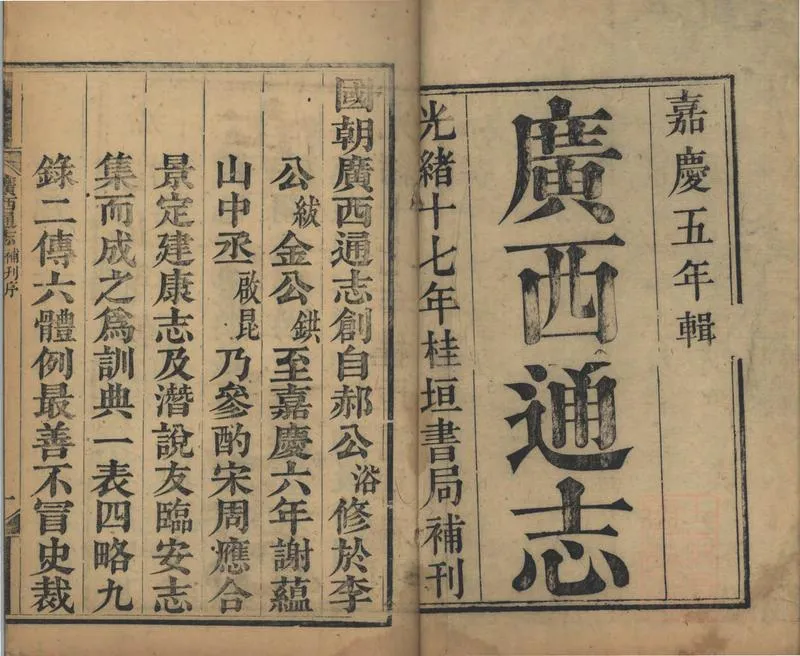 嘉慶五年輯
廣西通志
光緒十七年桂垣書局補刊
國朝廣西通志創自郝公浴修於李
公紱金公鉷至嘉慶六年謝蘊
山中丞啟昆乃參酌宋周應合
景定建康志及潛說友臨安志
集而成之爲訓典一表四略九
錄二傳六體例最善不冒史裁
廣西通志補刊序